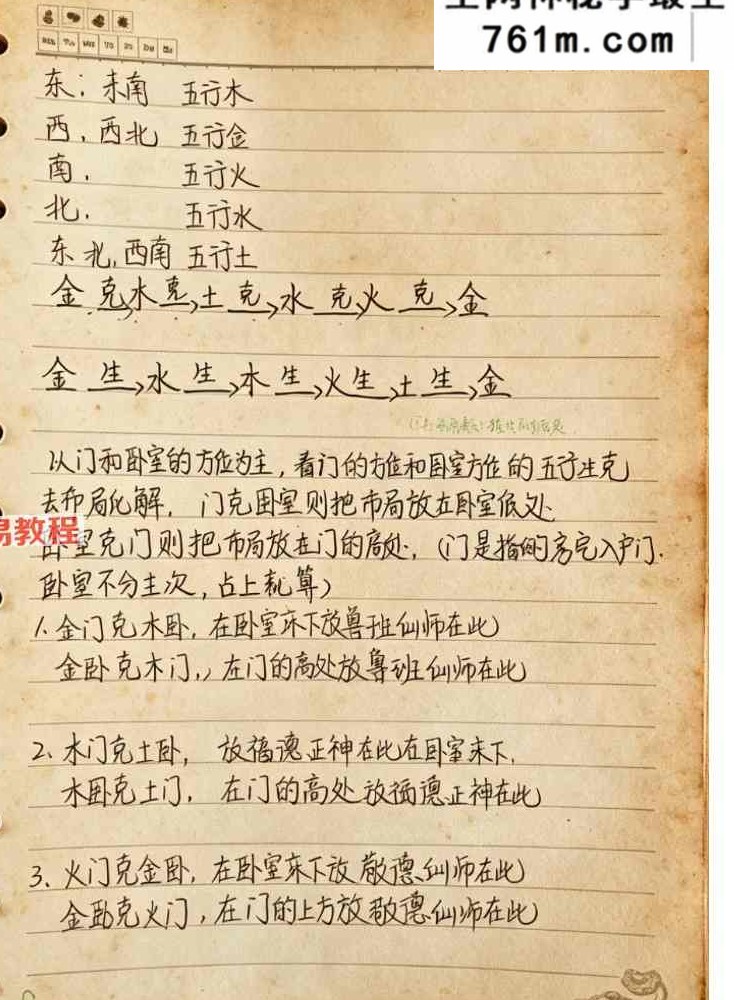 761m.com
东: 东南 五行木
西, 西北 五行金
南, 五行火
北, 五行水
东北, 西南 五行土
金克→木克→土克→水克→火克→金
金生→水生→木生→火生→土生→金
以门和卧室的方位为主, 看门的方位和卧室方位的五行生克
去布局化解, 门克卧室则把布局放在卧室低处
易教程
卧室克门则把布局放在门的高处, (门是指的房宅入户门.
卧室不分主次, 占上就算)
1. 金门克木卧, 在卧室床下放鲁班仙师在此
金卧克木门, 在门的高处放鲁班仙师在此
2. 木门克土卧, 放福德正神在此在卧室床下.
木卧克土门, 在门的高处放福德正神在此
3. 火门克金卧, 在卧室床下放敬德仙师在此
金卧克火门, 在门的上方放敬德仙师在此